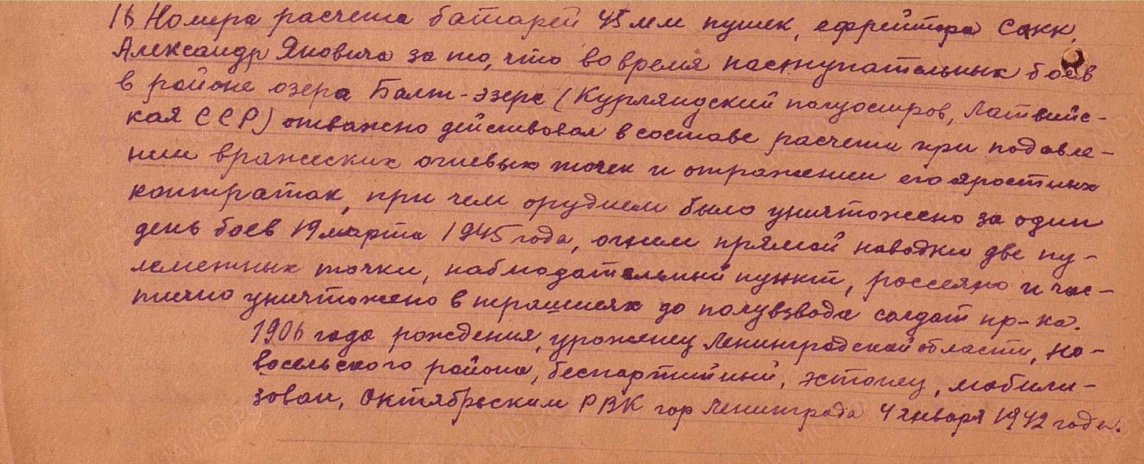 16 Номера расчета батареи 45 мм пушек, ефрейтора Сакк,
Александр Яновича за то, что во время наступательных боев
в районе озера Балт-эзерс (Курляндский полуостров, Латвийс-
кая ССР) отважно действовал в составе расчета при подавле-
нии вражеских огневых точек и отражении его яростных
контратак, при чем орудием было уничтожено за один
день боев 19 марта 1945 года, огнем прямой наводки две пу-
леметных точки, наблюдательный пункт, рассеяно и час-
тично уничтожено в траншеях до полувзвода солдат пр-ка.
1906 года рождения, уроженец Ленинградской области, Но-
восельского района, беспартийный, эстонец, мобили-
зован, Октябрьским РВК гор Ленинграда 4 января 1942 года.